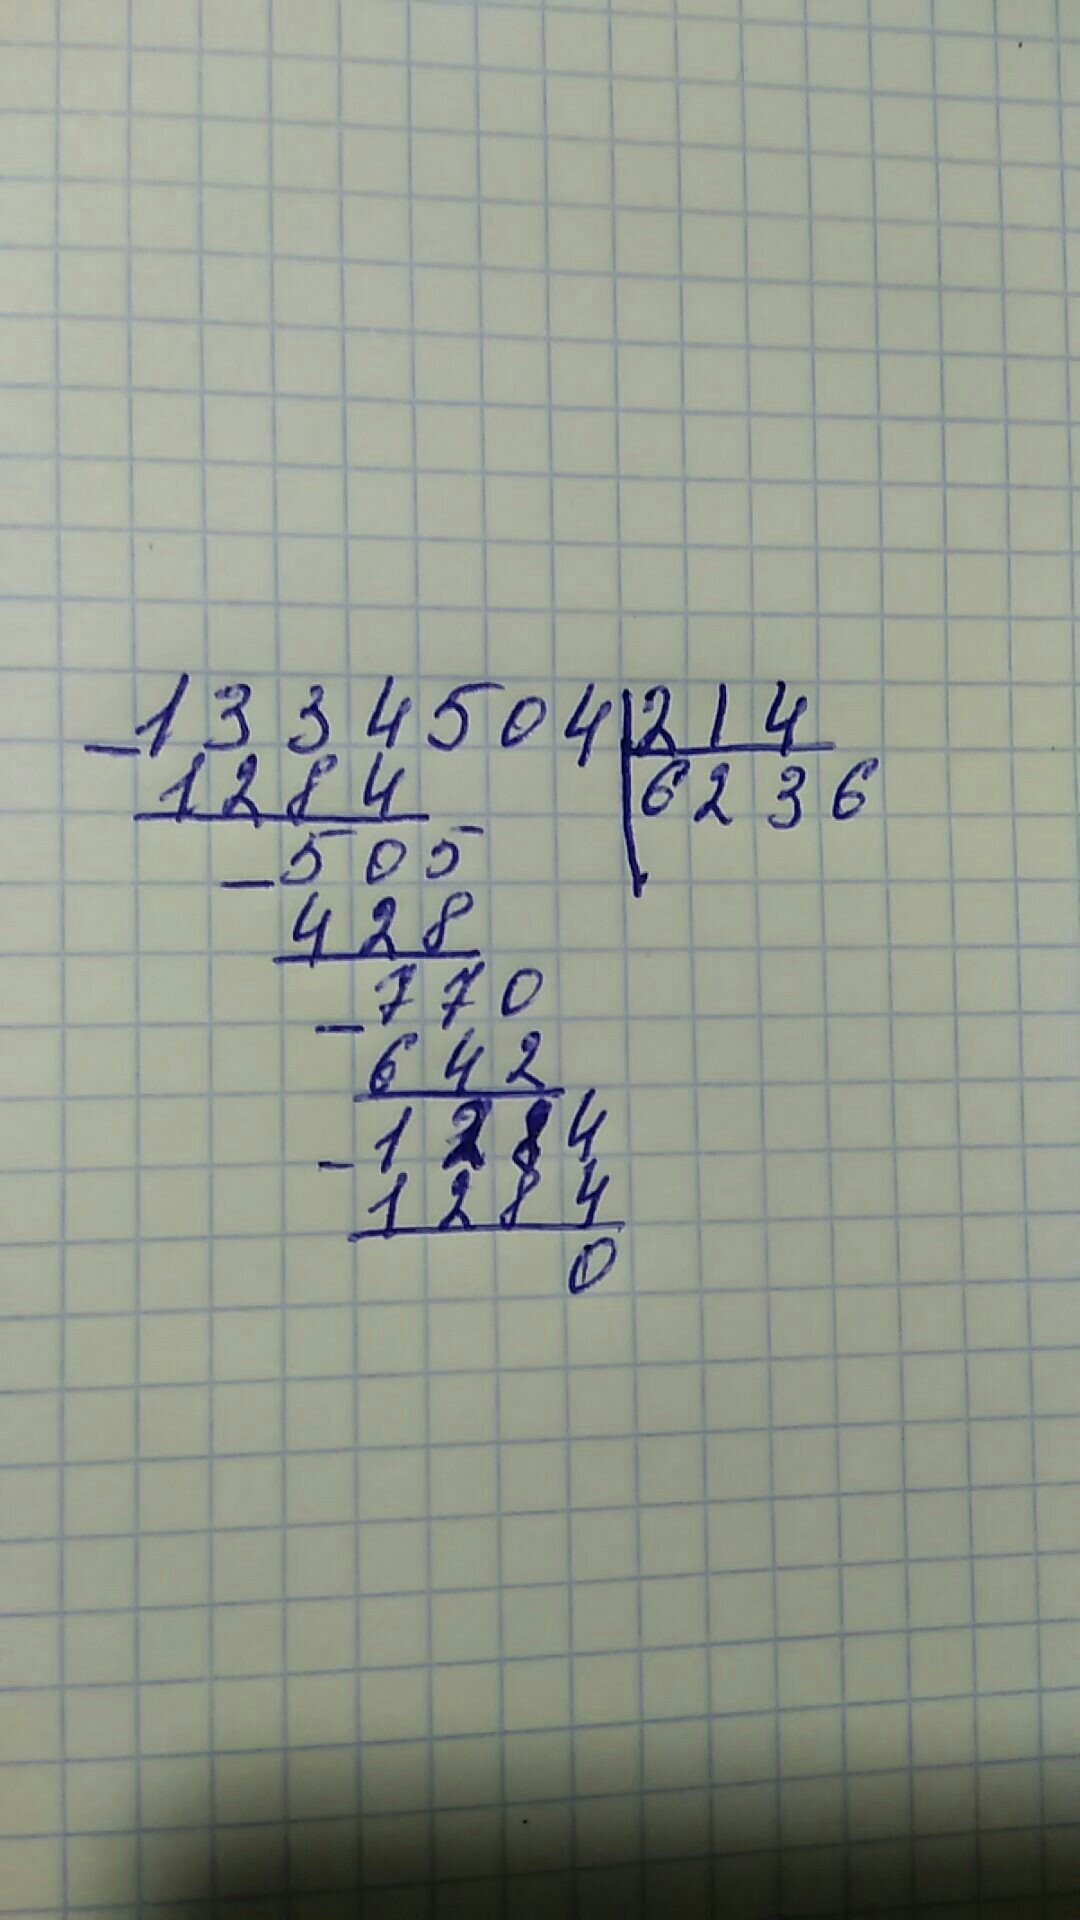 -1334504|214
1284 6236
-505
428
-770
642
-1284
1284
0